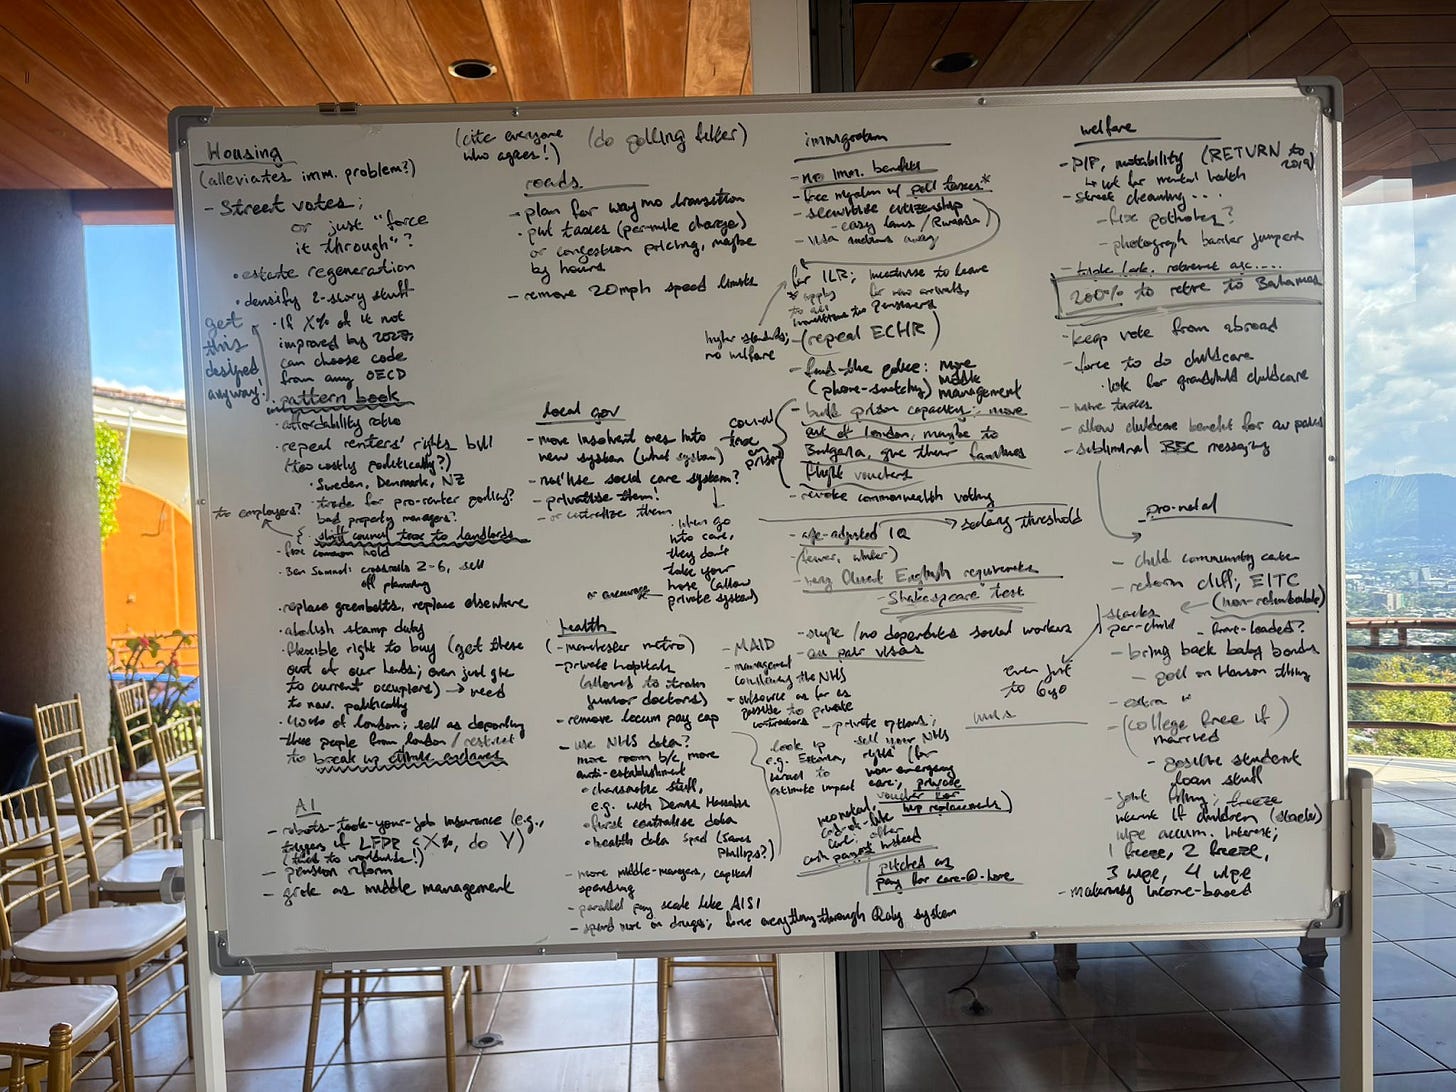 Housing
(alleviates imm. problem?)
- Street votes;
or just "force
it through"?
• estate regeneration
• densify 2-story stuff
• If X% of it not
improved by
can choose code
from any OECD
get
this
desiped
anyway!
pattern book
• affordability ratio
• repeal renters' rights bill
(too costly politically?)
• Sweden, Denmark, NZ
• trade for pro-renter policy?
bad property managers?
to employers?
shift council tax to landlords
• fix common hold
• Ben Southwood: crossrails 2-6, sell
off planning
• replace greenbelts, replace elsewhere
• abolish stamp duty
• flexible right to buy (get these
out of our hands; even just give
to current occupiers) → need
to nav. politically
• of London; sell as deporting
these people from London / restrict
to break up enclaves
AI
- robots-took-your-job insurance (e.g.,
triggers if LFPR < X%, do Y)
(tied to worldwide!)
- pension reform
- grok as middle management
(cite everyone
who agrees!)
(do polling filter)
roads
- plan for waymo transition
• put taxes (per-mile charge)
or congestion pricing, maybe
by hours
- remove 20mph speed limits
local gov
- move insolvent ones into
new system (what system)
- nat'lise social care system?
- privatise them!
- or centralise them
• when go
into care,
they don't
take your
house (allow
private system)
or encourage
health
(- manchester metro)
- private hospitals
(allowed to train
junior doctors)
- remove locum pay cap
- use NHS data?
more room b/c more
anti-establishment
• charismatic stuff,
e.g. with Demis Hassabis
• first centralise data
• health data sped (James
Phillips?)
- more middle-managers, capital
spending
- parallel pay scale like AISI
- spend more on drugs; force everything through Qaly system
- MAID
- management
consultancy the NHS
- outsource as far as
possible to private
contractors
- private options;
"sell your NHS
rights" (for
non-emergency
care; private
voucher for
hip replacements)
look up
e.g. Estonia,
Israel to
estimate impact
monetal,
end-of-life
care; offer
cash payout instead
pitched as
pay for care-@-home
immigration
- no imm. benefits
- free migration w/ poll taxes*
- securitise citizenship
- easy laws / Rwanda)
- Visa auctions away
for ILR; incentivise to leave
* apply
to all
for new arrivals,
transitions to Pensioners
higher standards;
no welfare
- (repeal ECHR)
- fund the police: more
(phone-snatching) middle
management
- build prison capacity; move
out of London, maybe to
Bulgaria, give their families
flight vouchers
council
tax on
prison
- revoke commonwealth voting
→ salary threshold
- age-adjusted IQ
- (fewer, whiter)
- very fluent English requirements
- "Shakespeare" test
- single / no dependents social workers
- au pair visas
welfare
- PIP, motability (RETURN to
2019)
↳ not for mental health
- street cleaning...
- fix potholes?
- photograph barrier jumpers
- triple lock, retirement age....
200% to retire to Bahamas
- keep vote from abroad
- force to do childcare
• look for grandchild childcare
- more taxes
- allow childcare benefit for au pairs
- subliminal BBC messaging
pro-natal
- child community center
- reform cliff; EITC
(non-refundable)
stacks
per-child
- front-loaded?
- bring back baby bonds
- poll on Hanson thing
even just
to 6yo
- extra "
- (college free if
married)
- positive student
loan stuff
- joint filing; freeze
interest if children (stacks)
wipe accum. interest;
1 freeze, 2 freeze,
3 wipe, 4 wipe
- maternity income-based